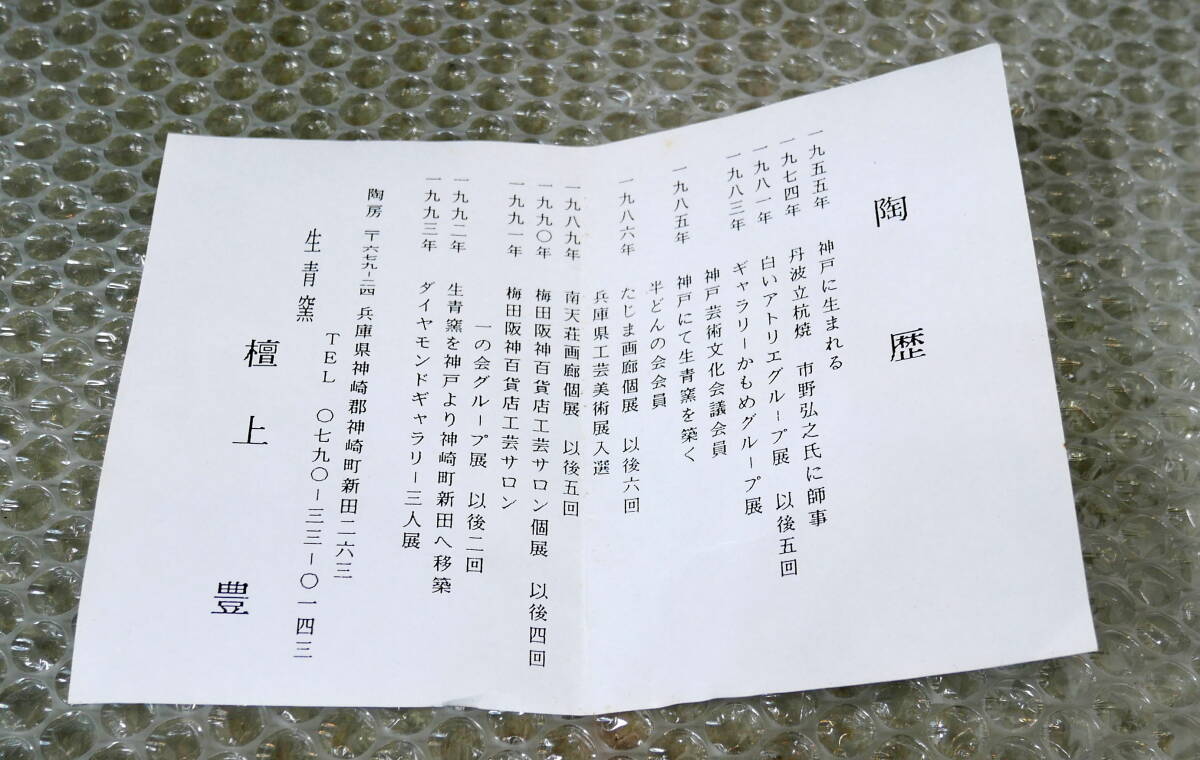 陶歴
一九五五年 神戸に生まれる
一九七四年 丹波立杭焼 市野弘之氏に師事
一九八一年 白いアトリエグループ展 以後五回
一九八三年 ギャラリーかもめグループ展
神戸芸術文化会議会員
一九八五年 神戸にて生青窯を築く
半どんの会会員
一九八六年 たじま画廊個展 以後六回
兵庫県工芸美術展入選
一九八九年 南天荘画廊個展 以後五回
一九九〇年 梅田阪神百貨店工芸サロン個展 以後四回
一九九一年 梅田阪神百貨店工芸サロン
一の会グループ展 以後二回
一九九二年 生青窯を神戸より神崎町新田へ移築
一九九三年 ダイヤモンドギャラリー三人展
陶房 〒六七九-二四 兵庫県神崎郡神崎町新田二六三
TEL 〇七九〇-三三-〇一四三
生青窯
檀上豊